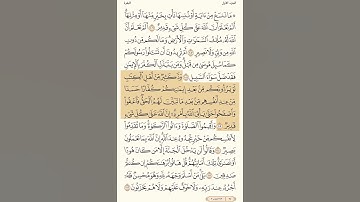 الجزء الأول البقرة
۞ مَا نَنسَخْ مِنْ ءَايَةٍ أَوْ نُنسِهَا نَأْتِ بِخَيْرٍ مِّنْهَآ أَوْ مِثْلِهَآ ۗ
أَلَمْ تَعْلَمْ أَنَّ ٱللَّهَ عَلَىٰ كُلِّ شَىْءٍ قَدِيرٌ ١٠٦ أَلَمْ تَعْلَمْ أَنَّ
ٱللَّهَ لَهُۥ مُلْكُ ٱلسَّمَٰوَٰتِ وَٱلْأَرْضِ ۗ وَمَا لَكُم مِّن دُونِ
ٱللَّهِ مِن وَلِىٍّ وَلَا نَصِيرٍ ١٠٧ أَمْ تُرِيدُونَ أَن تَسْـَٔلُوا۟ رَسُولَكُمْ
كَمَا سُئِلَ مُوسَىٰ مِن قَبْلُ ۗ وَمَن يَتَبَدَّلِ ٱلْكُفْرَ بِٱلْإِيمَٰنِ
فَقَدْ ضَلَّ سَوَآءَ ٱلسَّبِيلِ ١٠٨ وَدَّ كَثِيرٌ مِّنْ أَهْلِ ٱلْكِتَٰبِ
لَوْ يَرُدُّونَكُم مِّنۢ بَعْدِ إِيمَٰنِكُمْ كُفَّارًا حَسَدًا
مِّنْ عِندِ أَنفُسِهِم مِّنۢ بَعْدِ مَا تَبَيَّنَ لَهُمُ ٱلْحَقُّ ۖ فَٱعْفُوا۟
وَٱصْفَحُوا۟ حَتَّىٰ يَأْتِىَ ٱللَّهُ بِأَمْرِهِۦٓ ۗ إِنَّ ٱللَّهَ عَلَىٰ كُلِّ شَىْءٍ
قَدِيرٌ ١٠٩ وَأَقِيمُوا۟ ٱلصَّلَوٰةَ وَءَاتُوا۟ ٱلزَّكَوٰةَ ۚ وَمَا تُقَدِّمُوا۟
لِأَنفُسِكُم مِّنْ خَيْرٍ تَجِدُوهُ عِندَ ٱللَّهِ ۗ إِنَّ ٱللَّهَ بِمَا تَعْمَلُونَ
بَصِيرٌ ١١٠ وَقَالُوا۟ لَن يَدْخُلَ ٱلْجَنَّةَ إِلَّا مَن كَانَ هُودًا
أَوْ نَصَٰرَىٰ ۗ تِلْكَ أَمَانِيُّهُمْ ۗ قُلْ هَاتُوا۟ بُرْهَٰنَكُمْ إِن كُنتُمْ
صَٰدِقِينَ ١١١ بَلَىٰ مَنْ أَسْلَمَ وَجْهَهُۥ لِلَّهِ وَهُوَ مُحْسِنٌ فَلَهُۥٓ
أَجْرُهُۥ عِندَ رَبِّهِۦ وَلَا خَوْفٌ عَلَيْهِمْ وَلَا هُمْ يَحْزَنُونَ ١١٢